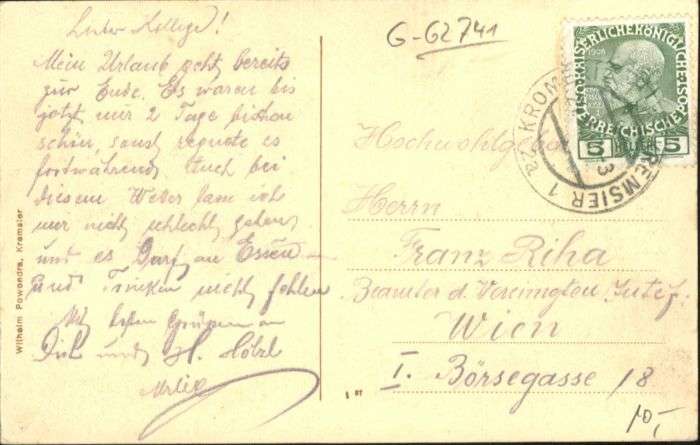 Lieber Kollege!
Mein Urlaub geht bereits
zur Ende. Es waren bis
jetzt nur 2 Tage bischen
schön, sonst regnete es
fortwährend. Auch bei
diesem Weder kann ich
nur nicht schlecht gehen
und es Darf an Essen
und Trinken nicht fehlen
Mit besten Grüssen an
Dich und H. Hölzl
G-62741
KAISERLICHE KÖNIGLICHE
ÖSTERREICHISCHE POST
1908
5 HELLER 5
KREMSIER 1
Hochwohlgeb
Herrn
Franz Riha
Beamter d. Vereinigten Jutef.
Wien
I. Börsegasse 18
10,-
Wilhelm Powondra, Kremsier